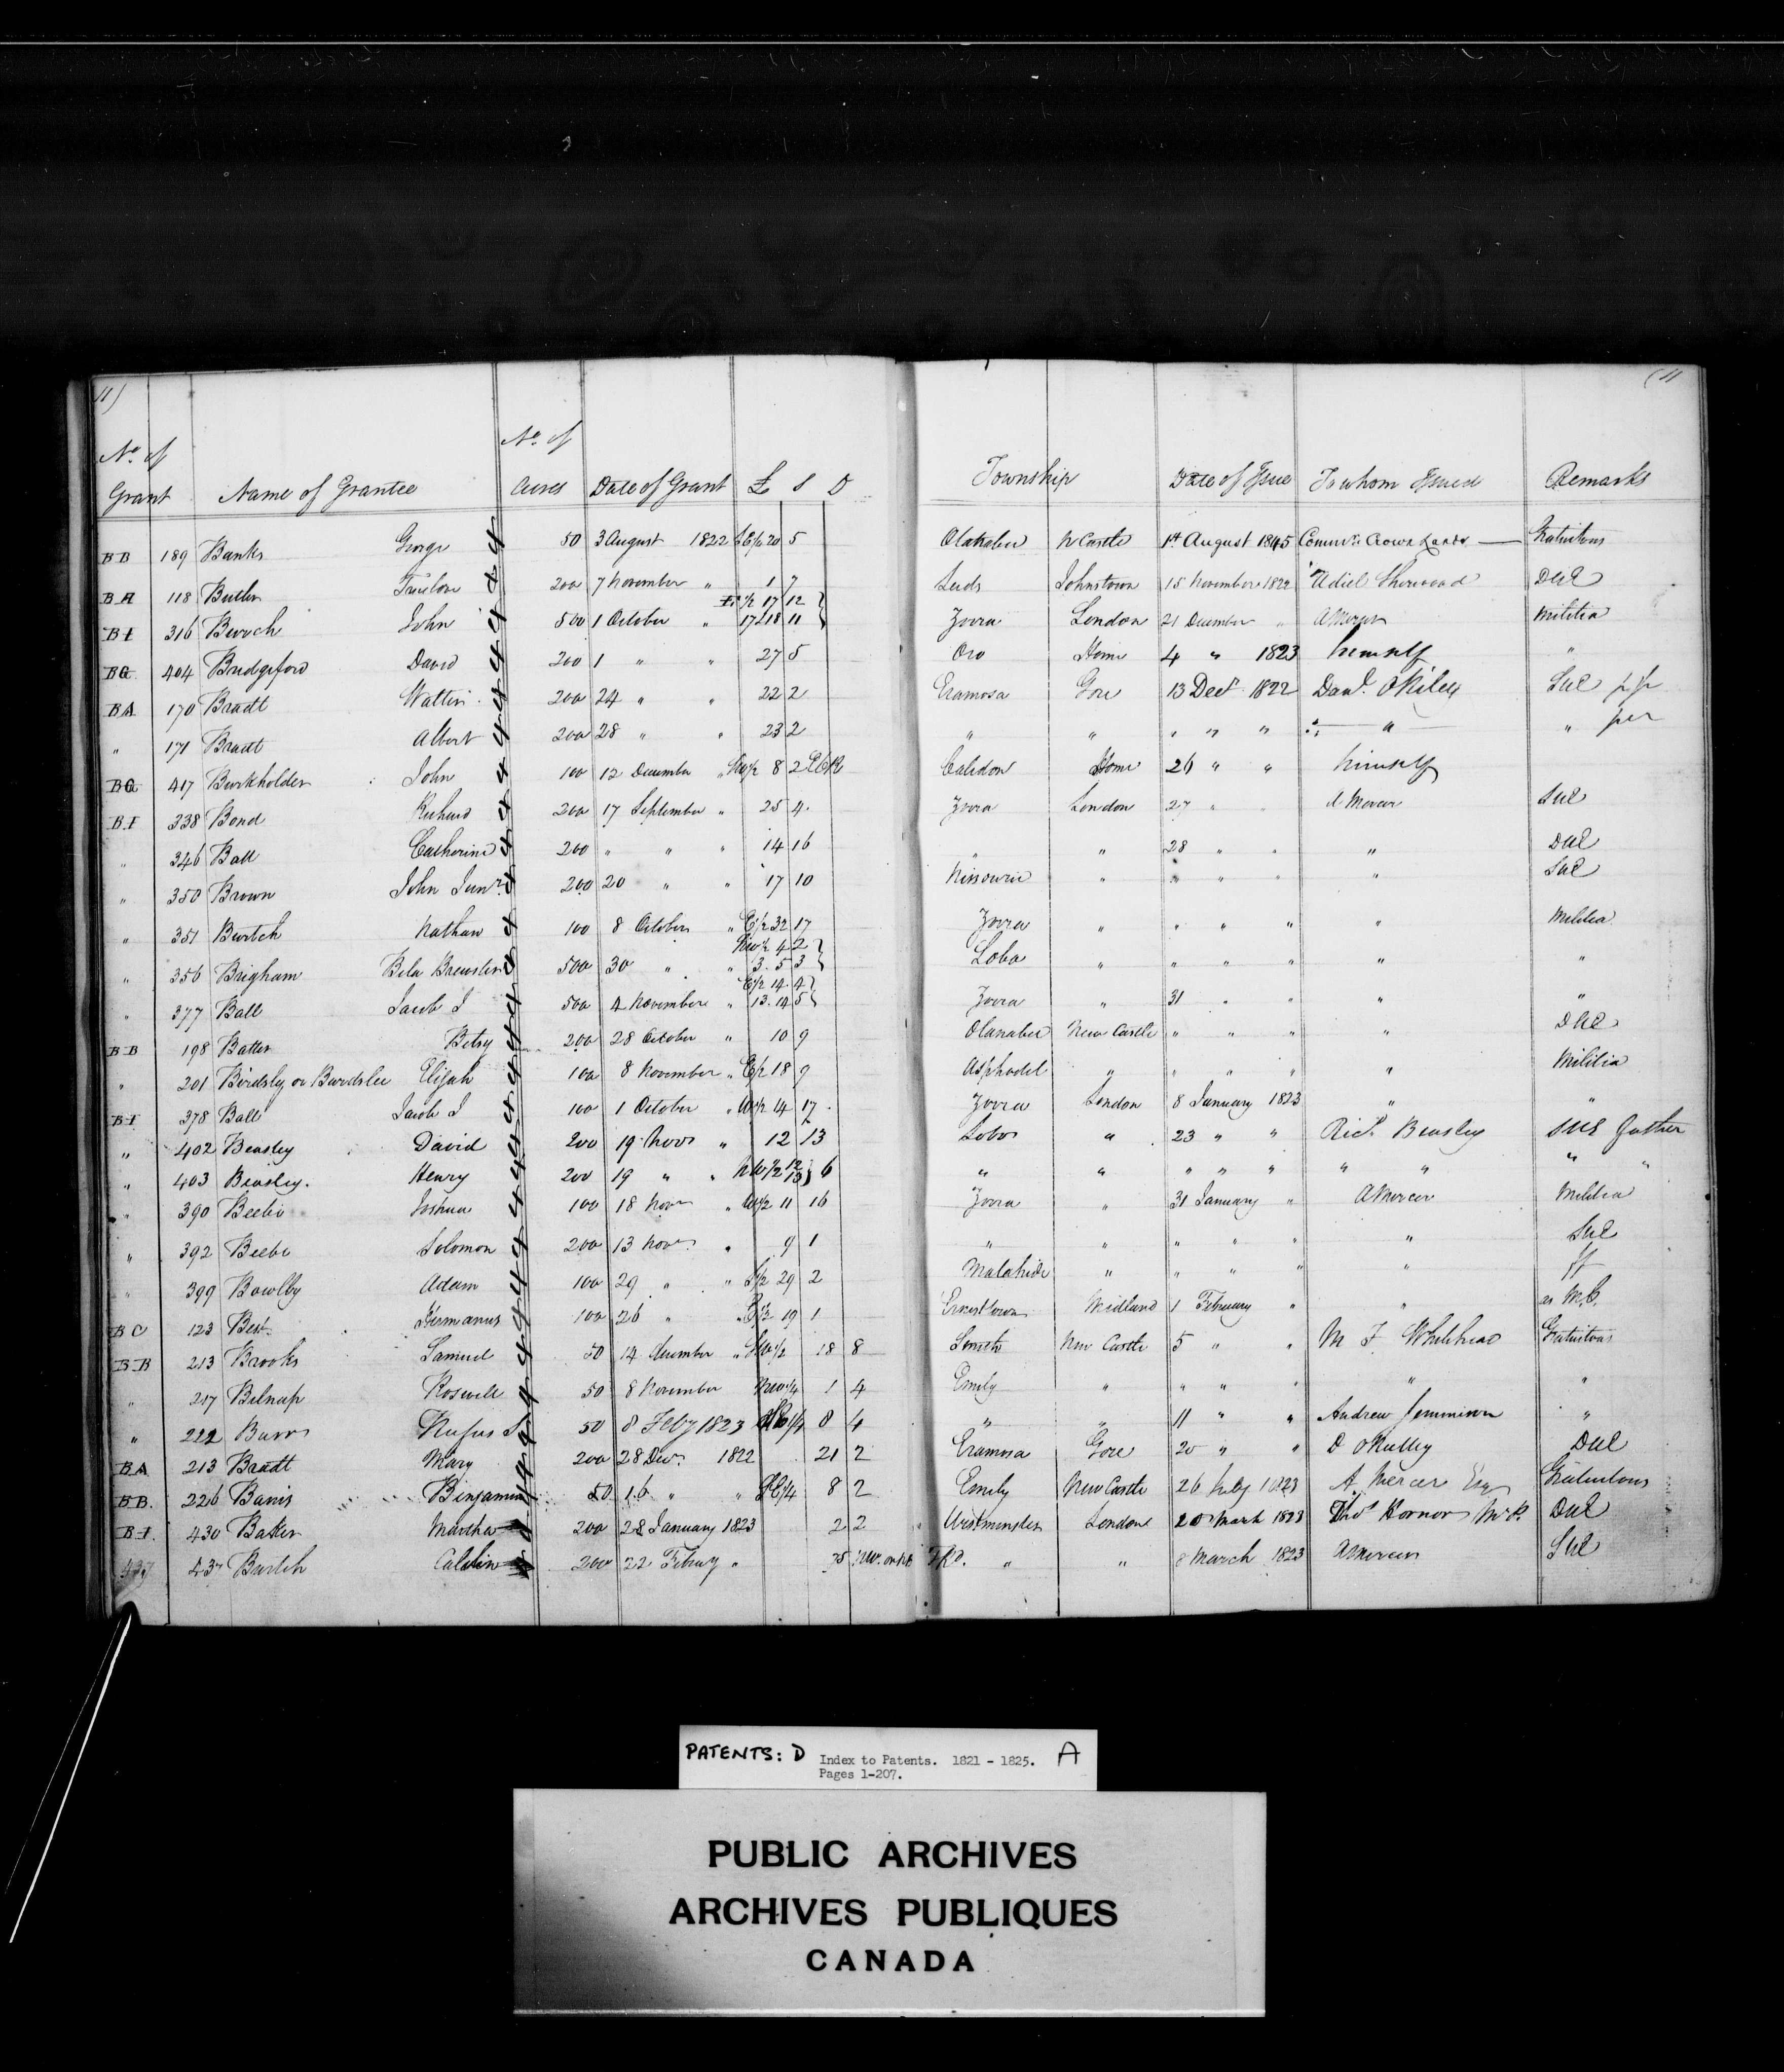 11) (11
No. of No. of
Grant Name of Grantee Acres Date of Grant £ S D Township Date of Issue To whom Issued Remarks
BB 189 Banks George 4 50 3 August 1822 20 5 Otanabee N Castle 1st August 1845 Commr. Crown Lands — Gratuitous
BA 118 Butler 4 200 7 November " 1 7 Leeds Johnstown 15 November 1822 Adiel Sherwood DUE
E 1/2 17 12 }
BI 316 Burch John 4 500 1 October " 17 & 18 11 } Zorra London 21 December " A Mercer Militia
BG 404 Bridgeford David 4 200 1 " " 27 5 Oro Home 4 " 1823 himself "
BA 170 Bradt Walter 4 200 24 " " 22 2 Eramosa Gore 13 Decr 1822 Danl. ORiley SUE
" 171 Bradt Albert 4 200 28 " " 23 2 " " " " " " " per
BG 417 Burkholder John 4 100 12 December " 8 2 Caledon Home 26 " " himself
BI 338 Bond Richard 4 200 17 September " 25 4 Zorra London 27 " " A Mercer SUE
" 346 Ball Catherine 4 200 " " " 14 16 " " 28 " " " DUE
" 350 Brown John Junr. 4 200 20 " " 17 10 Nissouri " " " " " SUE
" 351 Burtch Nathan 4 100 8 October " E 1/2 32 17 Zorra " " " " " Militia
NW 1/2 4 2 }
" 356 Brigham Bela Brewster 4 500 30 " " 3. 5 3 } Lobo " " " " " "
E 1/2 14. 4 }
" 377 Ball Jacob I 4 500 4 November " 13. 14 5 } Zorra " 31 " " " "
BB 198 Batter Betsy 4 200 28 October " 10 9 Otanabee New Castle " " " " DUE
" 201 Birdsley or Burdslee Elijah 4 100 8 November " E 1/2 18 9 Asphodel " " " " " Militia
BI 378 Ball Jacob I 4 100 1 October " W 1/2 14 17 Zorra London 8 January 1823 " "
" 402 Beasley David 4 200 19 Novr " 12 13 Lobo " 23 " " Richd. Beasley SUE father
" 403 Beasley. Henry 4 200 19 " " NW 1/2 12 13 } 6 " " " " " " " " "
" 390 Beebe Joshua 4 100 18 Novr " W 1/2 11 16 Zorra " 31 January " A Mercer Militia
" 392 Beebe Solomon 4 200 13 Novr " 9 1 " " " " " " SUE
" 399 Bowlby Adam 4 100 29 " " S 1/2 29 2 Malahide " " " " " ff
BC 123 Best Hermanus 4 100 26 " " E 1/2 19 1 Ernesttown Midland 1 February " " as M.C.
BB 213 Brooks Samuel 4 50 14 December " SW 1/2 18 8 Smith New Castle 5 " " M F Whitehead Gratuitous
" 217 Belnap Roswell 4 50 8 November NW 1/4 1 4 Emily " " " " " "
" 222 Burrs Rufus S 4 50 8 Feby 1823 1/4 8 4 " " 11 " " Andrew Jemmison "
BA 213 Bradt Mary 4 200 28 Decr. 1822 21 2 Eramosa Gore 20 " " D OReilley DUE
BB. 226 Banis Benjamin 4 50 16 " " 1/4 8 2 Emily New Castle 26 Feby 1823 A. Mercer Esqr Gratuitous
BI. 430 Baker Martha 4 200 28 January 1823 2 2 Westminster London 20 March 1823 Thos Hornor M.P. DUE
437 Burtch Calvin 4 200 22 Febuy " 35 " " 8 March 1823 A Mercer SUE
PATENTS: D Index to Patents. 1821 - 1825. A
Pages 1-207.
PUBLIC ARCHIVES
ARCHIVES PUBLIQUES
CANADA